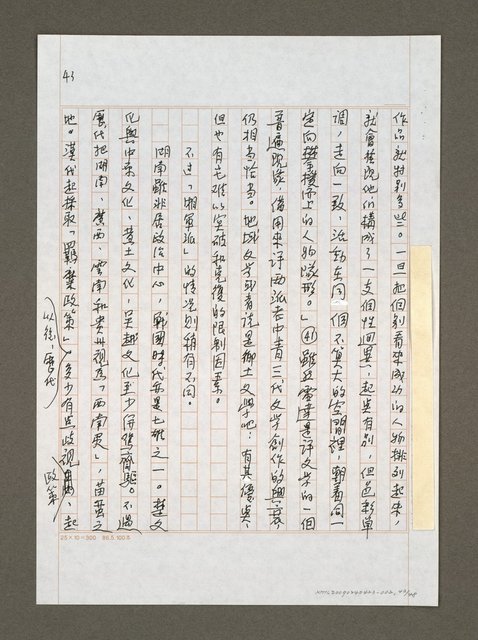 43
作品就特別多些。一旦把個別看來成功的人物排列起來，
就會發現他們構成了一支個性迥異、起點有別，但色彩單
調，走向一致，活動在同一個不算大的空間裡，朝着同一
定向攀摹擦上的人物隊形。」㊶雖然雷達是評文學的一個
普遍現象，借用來評兩派老中青三代文學創作的興衰，
仍相當恰當。地域文學或者說是鄉土文學吧，有其優點，
但也有它難以突破和克復的限制因素。
不过「湘軍派」的情況则稍有不同。
湖南雖非居政治中心，戰國時代亦是七雄之一。楚文
化與中原文化、黃土文化、吳越文化至少併駕齊驅。不過
歷代把湖南、廣西、雲南和貴州視為「西南夷」，苗蠻之
地。漢代起採取「羈縻政策」，
以後，歷代
多少有点歧視
政策
，起
25×10=300 86.5.100本